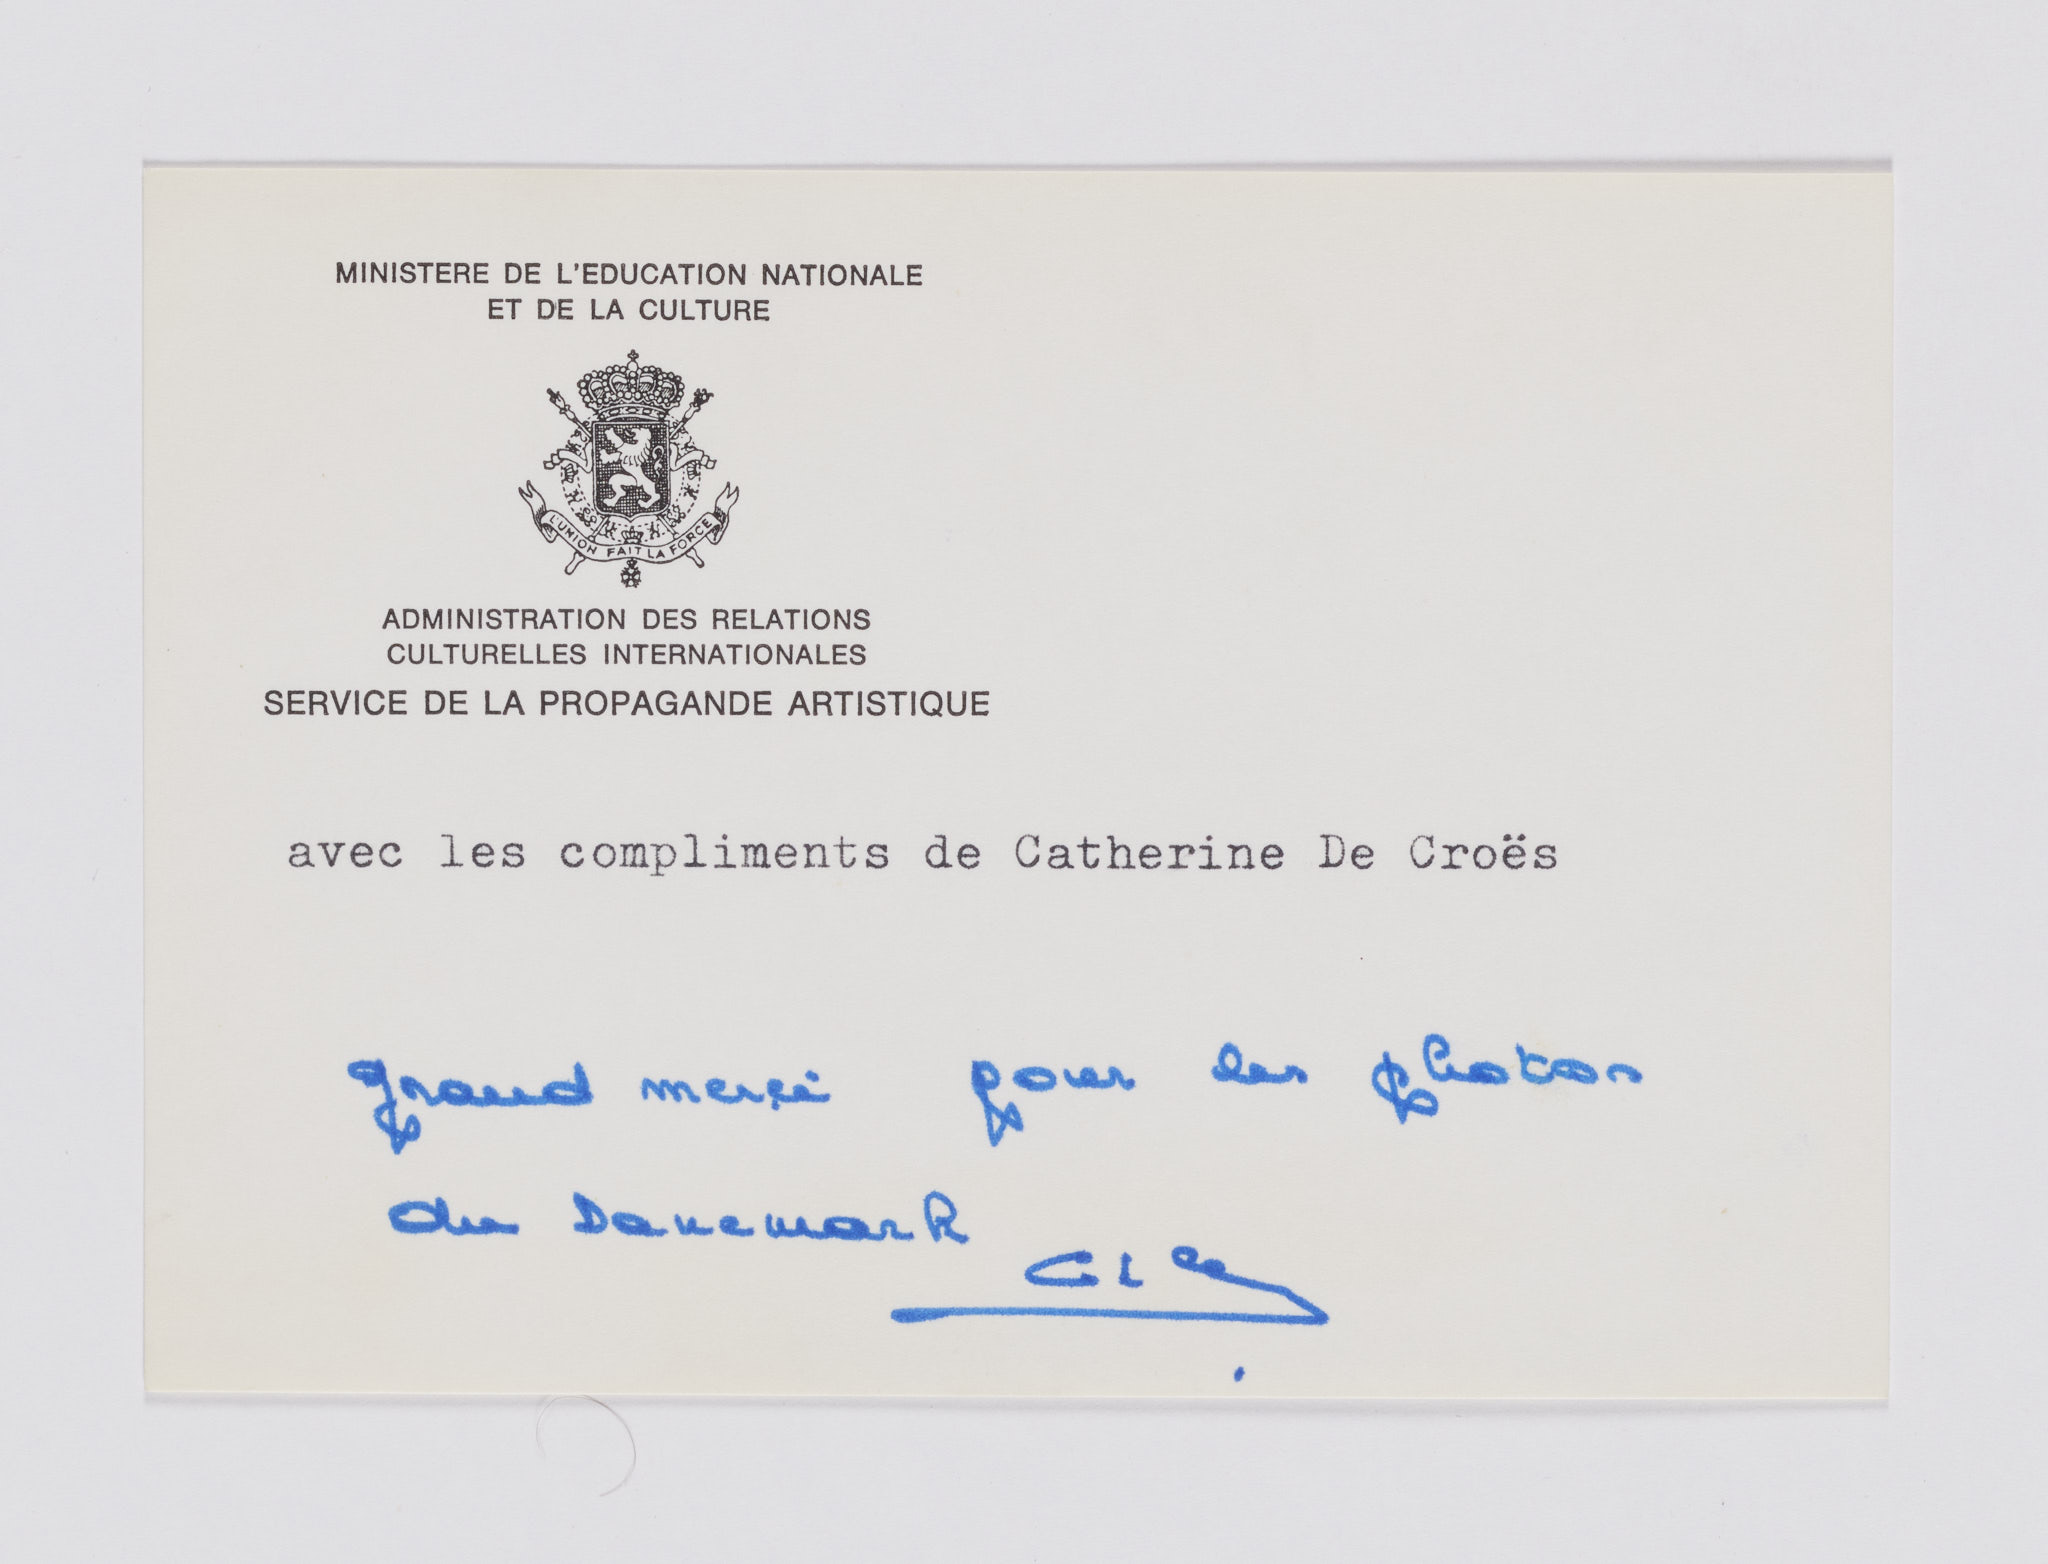 MINISTERE DE L'EDUCATION NATIONALE
ET DE LA CULTURE
L'UNION FAIT LA FORCE
ADMINISTRATION DES RELATIONS
CULTURELLES INTERNATIONALES
SERVICE DE LA PROPAGANDE ARTISTIQUE
avec les compliments de Catherine De Croës
grand merci pour les photos
du Danemark